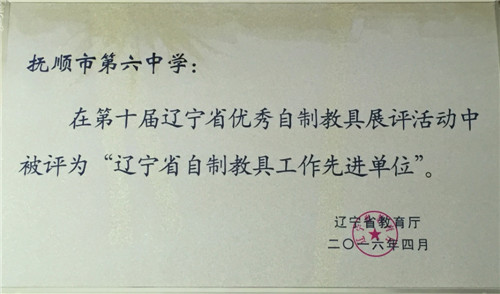 抚顺市第六中学：
在第十届辽宁省优秀自制教具展评活动中
被评为“辽宁省自制教具工作先进单位”。
辽宁省教育厅
二〇一六年四月